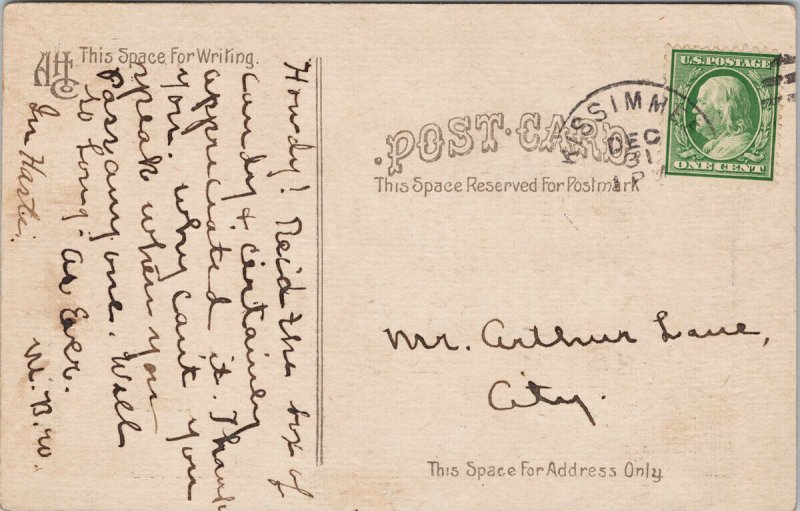 AHCo
This Space For Writing.
Howdy! Rec'd the box of
candy & certainly
appreciated it. Thank
you. why can't you
speak when you
pass any one. Well
So Long - As Ever.
In Haste.
M. B. W.
POST-CARD
This Space Reserved For Postmark
KISSIMME
DEC
31
1 P
U.S. POSTAGE
ONE CENT
Mr. Arthur Lane,
City.
This Space For Address Only